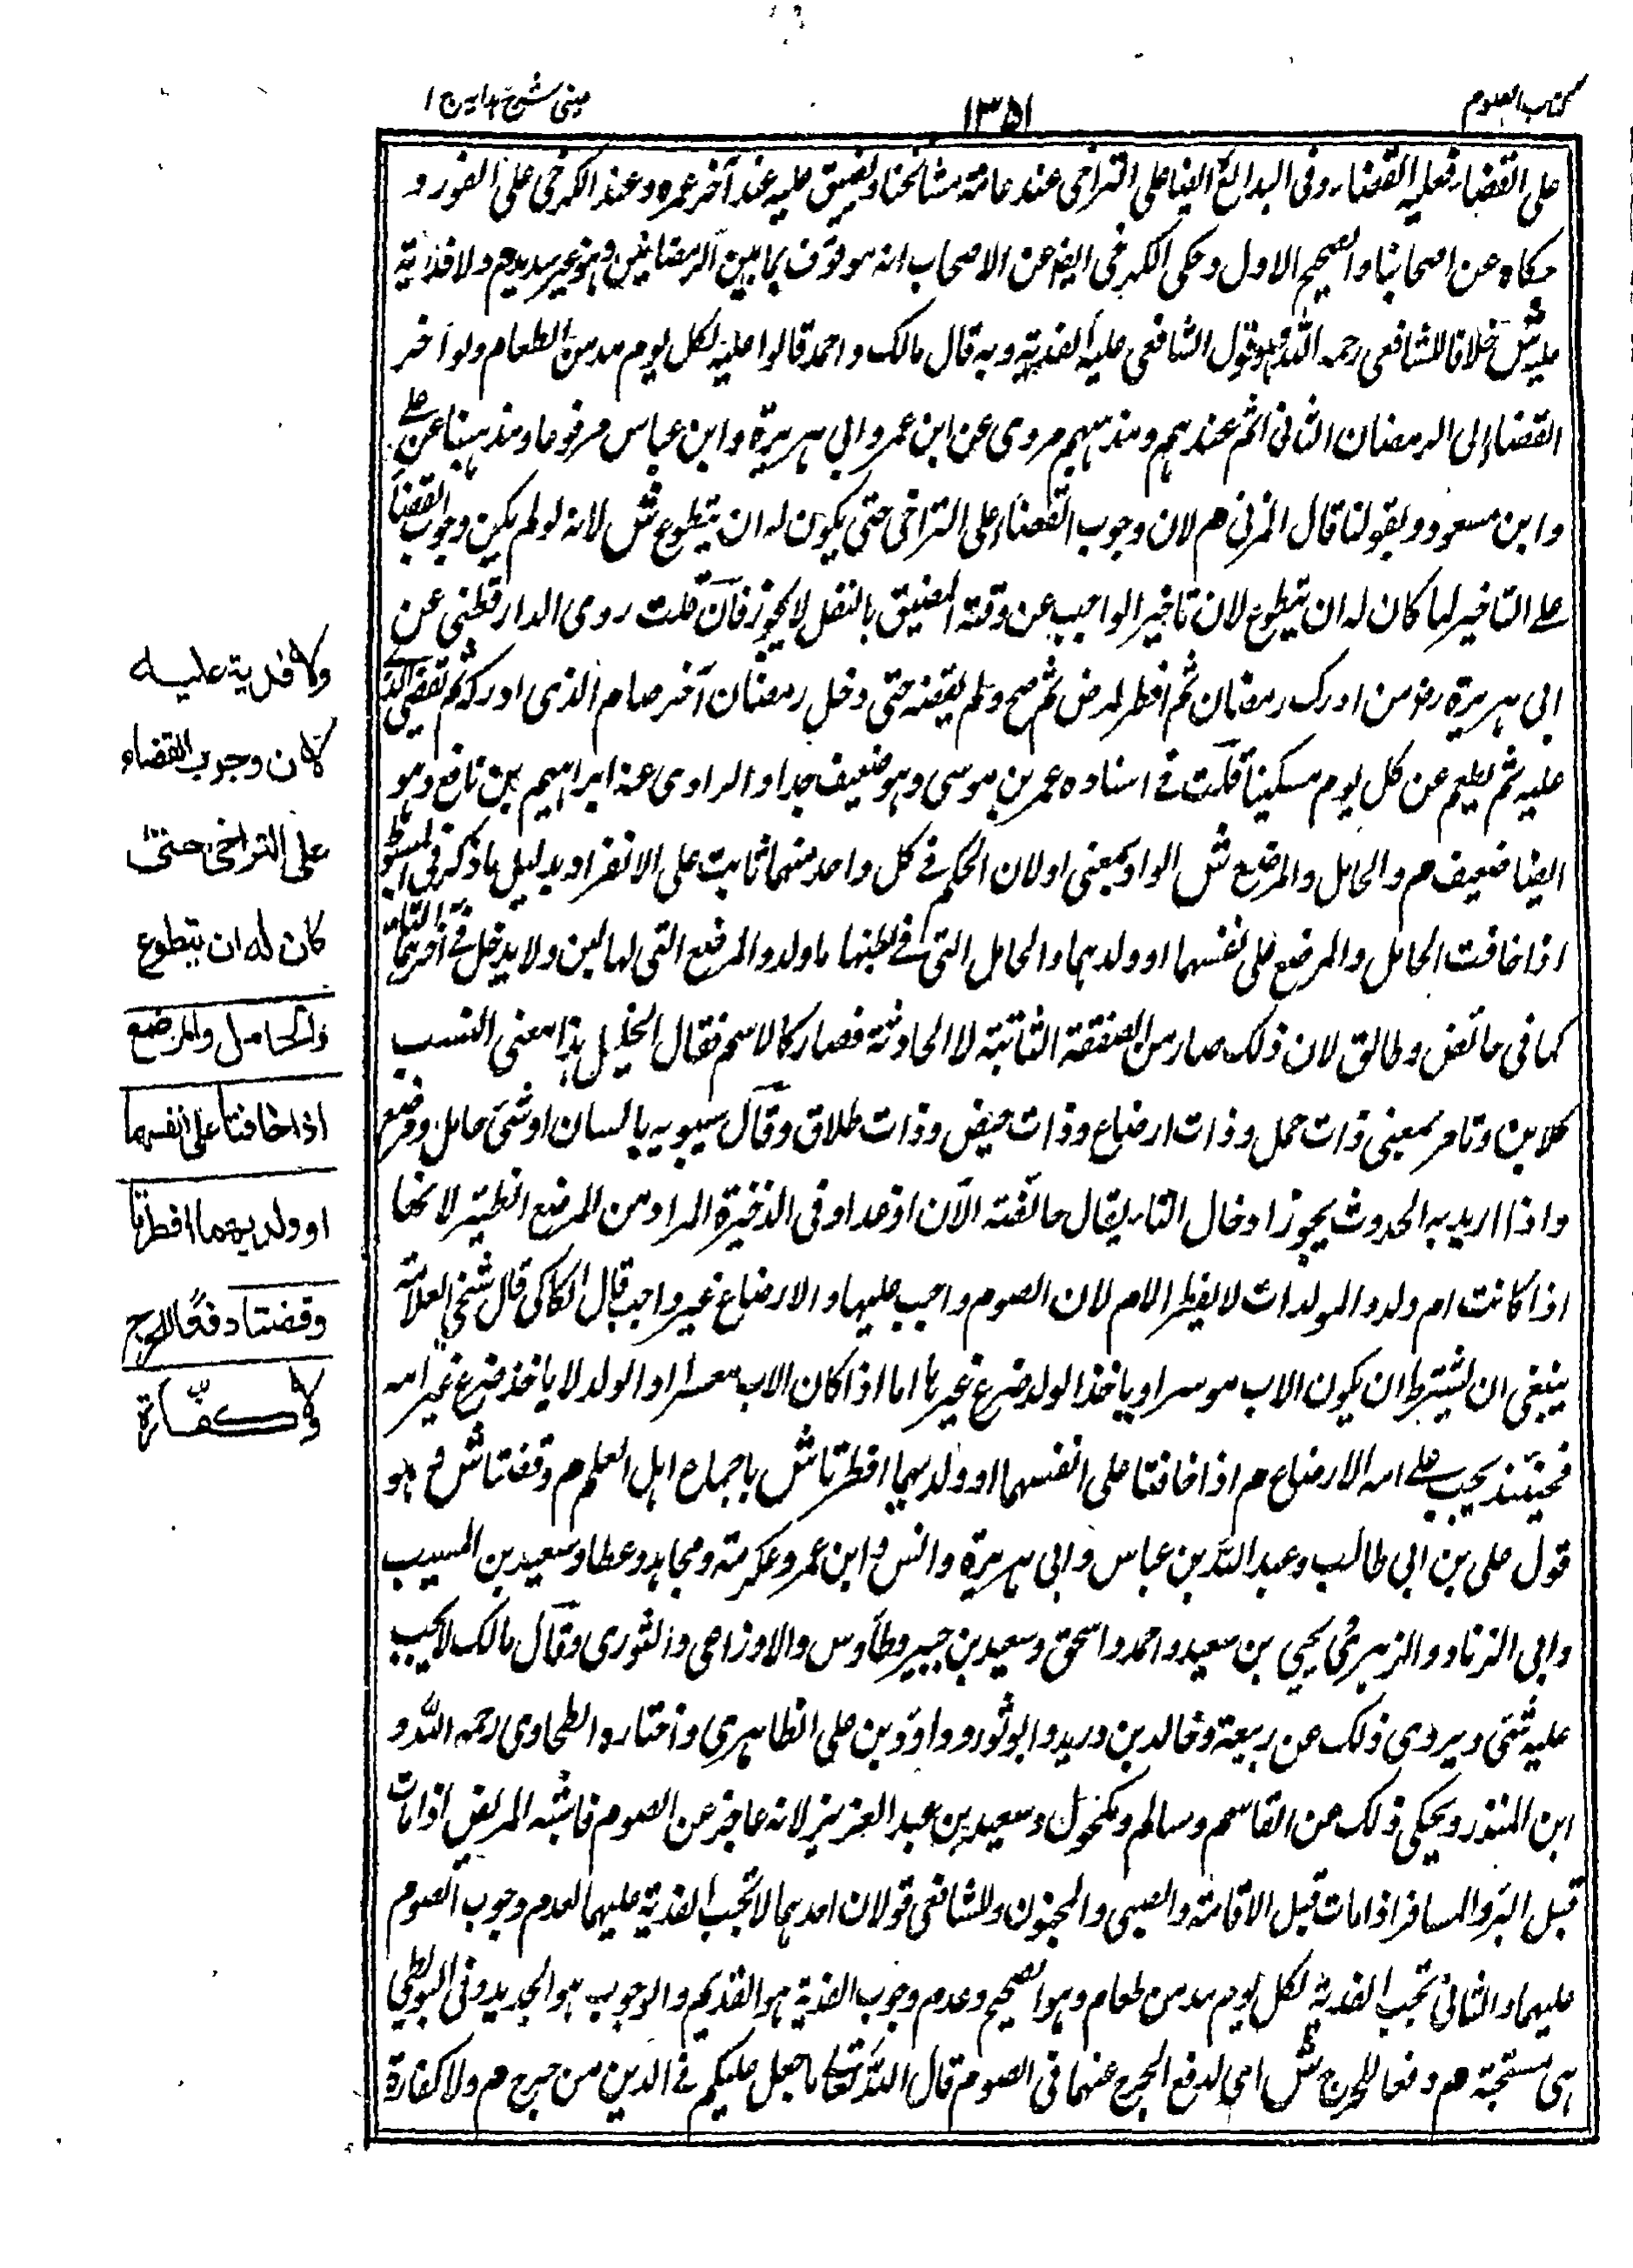 كتاب الصوم
١٣٥١
عينى شرح هدايه ج ١
على القضاء فعليه القضاء وفى البدائع ايضا على التراخى عند عامة مشائخنا ويضيق عليه عند آخر عمره وعند الكرخى على الفور و
حكاه عن اصحابنا والصحيح الاول وحكى الكرخى ايضا عن الاصحاب انه موقوف بما بين الرمضانين وهو غير سديد م ولا فدية
عليه ش خلافا للشافعى رحمه الله فهو قول الشافعى عليه الفدية وبه قال مالك واحمد قالوا عليه لكل يوم مد من الطعام ولو اخر
القضاء الى الرمضان الثانى اثم عندهم ومذهبهم مروى عن ابن عمر وابى هريرة وابن عباس مرفوعا ومذهبنا عن على
وابن مسعود وبقولنا قال المزنى م لان وجوب القضاء على التراخى حتى يكون له ان يتطوع ش لانه لو لم يكن وجوب القضاء
على التاخير لما كان له ان يتطوع لان تاخير الواجب عن وقته المضيق بالنفل لا يجوز فان قلت روى الدارقطنى عن
ابى هريرة رض من ادرك رمضان ثم افطر لمرض ثم صح ولم يقضه حتى دخل رمضان آخر صام الذى ادركه ثم تقضى الذى
عليه ثم يطعم عن كل يوم مسكينا قلت فى اسناده عمر بن موسى وهو ضعيف جدا والراوى عنه ابراهيم بن نافع وهو
ايضا ضعيف م والحامل والمرضع ش الواو بمعنى او لان الحكم فى كل واحد منهما ثابت على الانفراد بدليل ما ذكر فى المبسوط
اذا خافت الحامل والمرضع على نفسهما او ولدهما والحامل التى فى بطنها ولد والمرضع التى لها لبن ولا يدخل فى آخرهما التاء
كما فى حائض وطالق لان ذلك صار من الصفقة الثابتة لا الحادثة فصار كالاسم فقال الخليل هذا معنى النسب
كلابن وتامر بمعنى ذات حمل وذات ارضاع وذات حيض وذات طلاق وقال سيبويه بالسان او شئ حامل ومرضع
واذا اريد به الحدوث يجوز ادخال التاء يقال حائضة الآن او غدا وفى الذخيرة المراد من المرضع الظئير لانها
اذا كانت ام ولد والمولدات لا يفطر الام لان الصوم واجب عليها والارضاع غير واجب قال الكاكى قال شيخى العلامة
ينبغى ان يشترط ان يكون الاب موسرا وياخذ الولد ضرع غيرها اما اذا كان الاب معسرا والولد لا ياخذ ضرع غير امه
فحينئذ يجب على امه الارضاع م اذا خافتا على انفسهما او ولديهما افطرتا ش باجماع اهل العلم م وقضتا ش هو
قول على بن ابى طالب وعبد الله بن عباس وابى هريرة وانس وابن عمر وعكرمة ومجاهد وعطا وسعيد بن المسيب
وابى الزناد والزهرى يحيى بن سعيد واحمد واسحق وسعيد بن جبير وطاؤس والاوزاعى والثورى وقال مالك لا يجب
عليه شئ ويروى ذلك عن ربيعة وخالد بن دريد وابو ثور وداؤد بن على الظاهرى واختاره الطحاوى رحمه الله و
ابن المنذر ويحكى ذلك عن القاسم وسالم ومكحول وسعيد بن عبد العزيز لانه عاجز عن الصوم فاشبه المريض اذا مات
قبل البرء والمسافر اذا مات قبل الاقامة والصبى والمجنون وللشافعى قولان احدهما لا تجب الفدية عليهما لعدم وجوب الصوم
عليهما والثانى تجب الفدية لكل يوم مد من طعام وهو الصحيح وعدم وجوب الفدية هو القديم والوجوب هو الجديد وفى البوطى
هى مستحبة م دفعا للحرج ش اى لدفع الحرج عنهما فى الصوم قال الله تعالى ما جعل عليكم فى الدين من حرج م ولا كفارة
ولا فدية عليه
لان وجوب القضاء
على التراخى حتى
كان له ان يتطوع
والحامل والمرضع
اذا خافتا على انفسهما
او ولديهما افطرتا
وقضتا دفعًا للحرج
ولا كفّارة